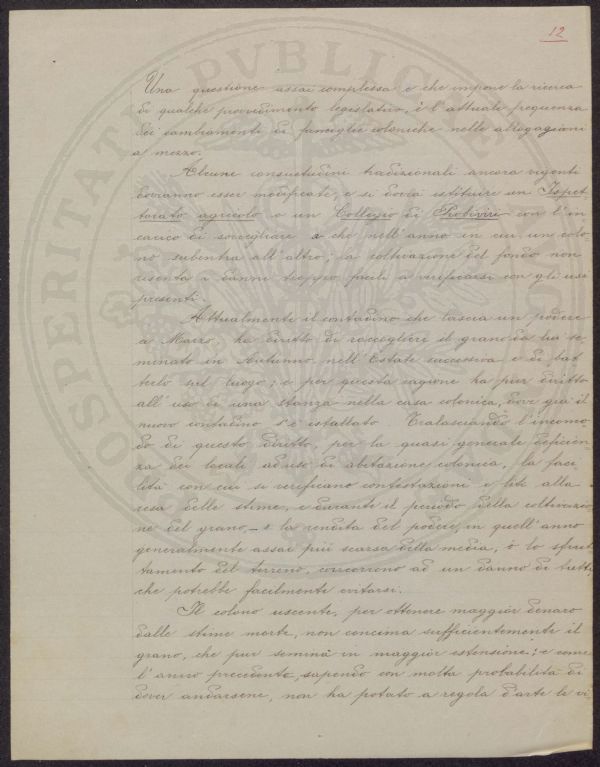 12
Una questione assai complessa e che impone la ricerca
di qualche provvedimento legislativo, è l'attuale frequenza
dei cambiamenti di famiglie coloniche nelle allogagioni
a mezzo.
Alcune consuetudini tradizionali ancora vigenti
dovranno esser modificate, e si dovrà istituire un Ispet
torato agricolo o un Collegio di Probiviri con l'in
carico di sorvegliare a che nell'anno in cui un colo
no subentra all'altro; la coltivazione del fondo non
risenta i danni troppo facili a verificarsi con gli usi
presenti.
Attualmente il contadino che lascia un podere
a Marzo, ha diritto di raccogliere il grano da lui se
minato in Autunno nell'Estate successiva e di bat
terlo sul luogo; e per questa ragione ha pur diritto
all'uso di una stanza nella casa colonica, dove già il
nuovo contadino s'è installato. Tralasciando l'incomo
do di questo diritto, per la quasi generale deficien
za dei locali ad uso di abitazione colonica, la faci
lità con cui si verificano contestazioni e liti alla
resa delle stime, e durante il periodo della coltivazio
ne del grano, e la rendita del podere, in quell'anno
generalmente assai più scarsa della media, è lo sfrut
tamento del terreno, concorrono ad un danno di tutti,
che potrebbe facilmente evitarsi.
Il colono uscente, per ottenere maggior denaro
dalle stime morte, non concima sufficientemente il
grano, che pur semina in maggior estensione; e come
l'anno precedente, sapendo con molta probabilità di
dover andarsene, non ha potato a regola d'arte le vi
PROSPERITATI PVBLICAE